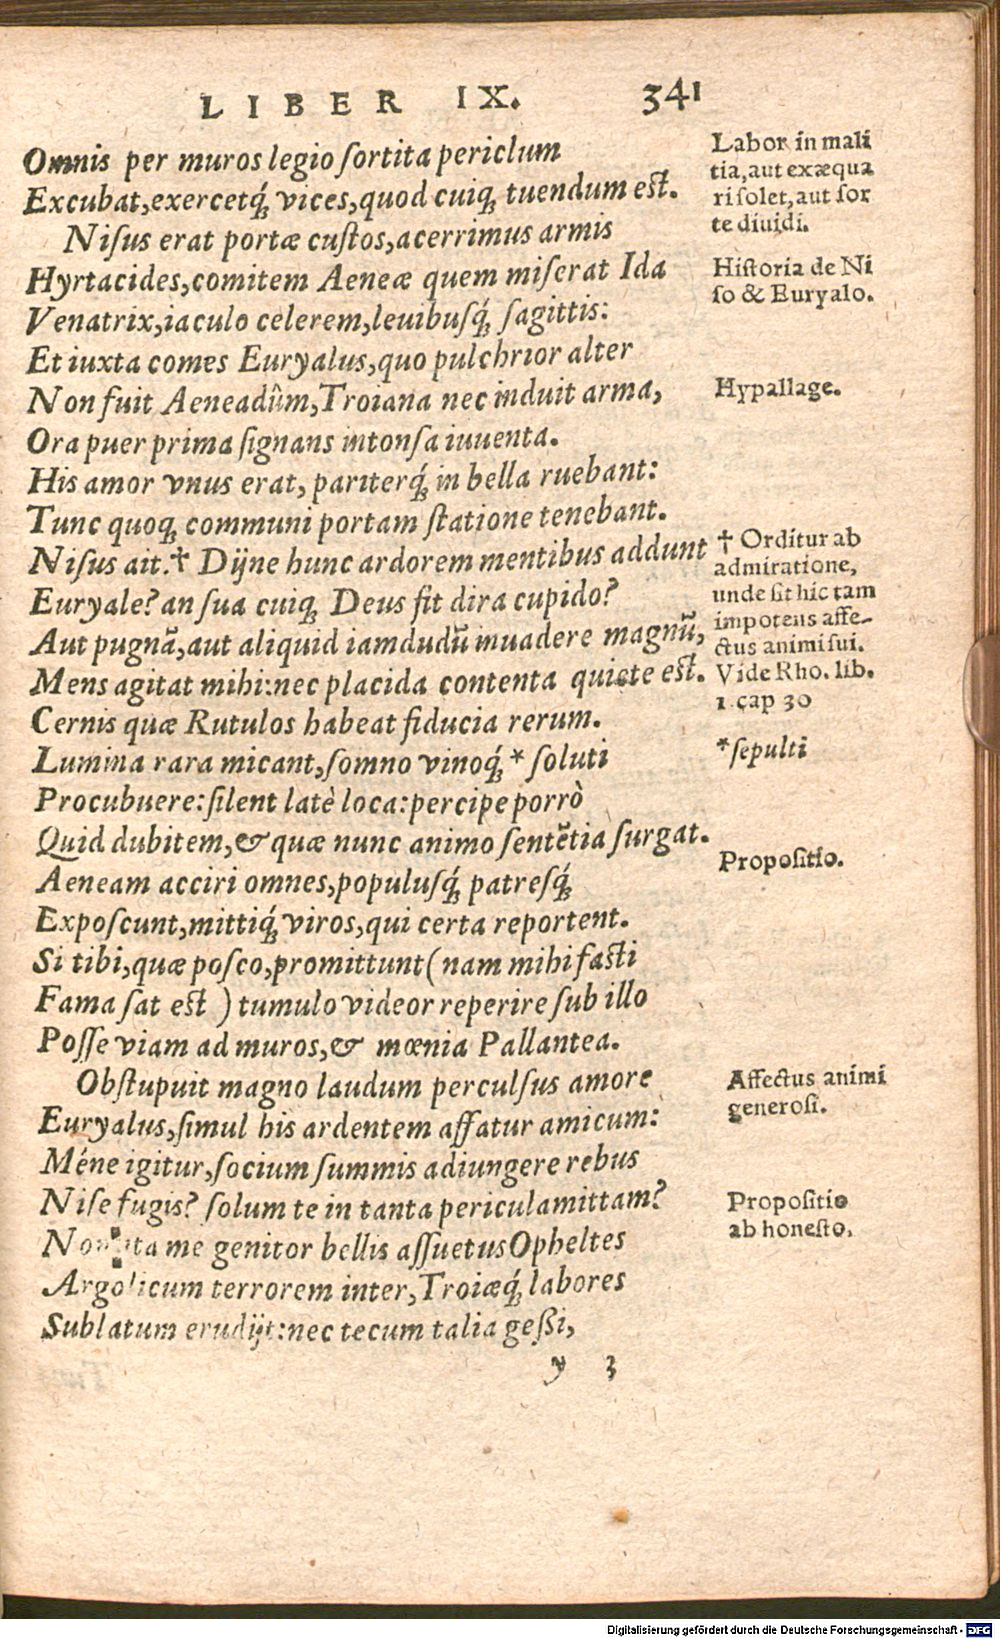 LIBER IX. 341
Omnis per muros legio ſortita periclum
Excubat, exercetq́ꝫ vices, quod cuiqꝫ tuendum eſt.
Niſus erat portæ cuſtos, acerrimus armis
Hyrtacides, comitem Aeneæ quem miſerat Ida
Venatrix, iaculo celerem, leuibuſq́ꝫ ſagittis:
Et iuxta comes Euryalus, quo pulchrior alter
Non fuit Aeneadûm, Troiana nec induit arma,
Ora puer prima ſignans intonſa iuuenta.
His amor vnus erat, pariterq́ꝫ in bella ruebant:
Tunc quoqꝫ communi portam ſtatione tenebant.
Niſus ait. † Dijne hunc ardorem mentibus addunt
Euryale? an ſua cuiqꝫ Deus fit dira cupido?
Aut pugnā, aut aliquid iamdudū inuadere magnū,
Mens agitat mihi: nec placida contenta quiete eſt.
Cernis quæ Rutulos habeat fiducia rerum.
Lumina rara micant, ſomno vinoq́ꝫ * ſoluti
Procubuere: ſilent latè loca: percipe porrò
Quid dubitem, & quæ nunc animo ſentētia ſurgat.
Aeneam acciri omnes, populuſq́ꝫ patreſq́ꝫ
Expoſcunt, mittiq́ꝫ viros, qui certa reportent.
Si tibi, quæ poſco, promittunt (nam mihi facti
Fama ſat eſt) tumulo videor reperire ſub illo
Poſſe viam ad muros, & mœnia Pallantea.
Obſtupuit magno laudum perculſus amore
Euryalus, ſimul his ardentem affatur amicum:
Méne igitur, ſocium ſummis adiungere rebus
Niſe fugis? ſolum te in tanta pericula mittam?
me genitor bellis aſſuetus Opheltes
Argolicum terrorem inter, Troiæq́ꝫ labores
Sublatum erudijt: nec tecum talia geßi,
y 3
Labor in mali
tia, aut exæqua
ri ſolet, aut ſor
te diuidi.
Hiſtoria de Ni
ſo & Euryalo.
Hypallage.
† Orditur ab
admiratione,
unde ſit hic tam
impotens affe-
ctus animi ſui.
Vide Rho. lib.
1. cap 30
*ſepulti
Propoſitio.
Affectus animi
generoſi.
Propoſitio
ab honeſto.
Digitalisierung gefördert durch die Deutsche Forschungsgemeinschaft - DFG